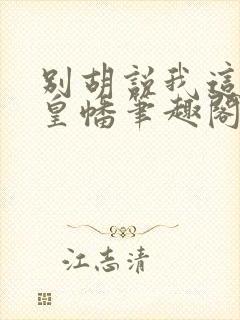 别胡说我这
皇幡笔趣阁
江志清